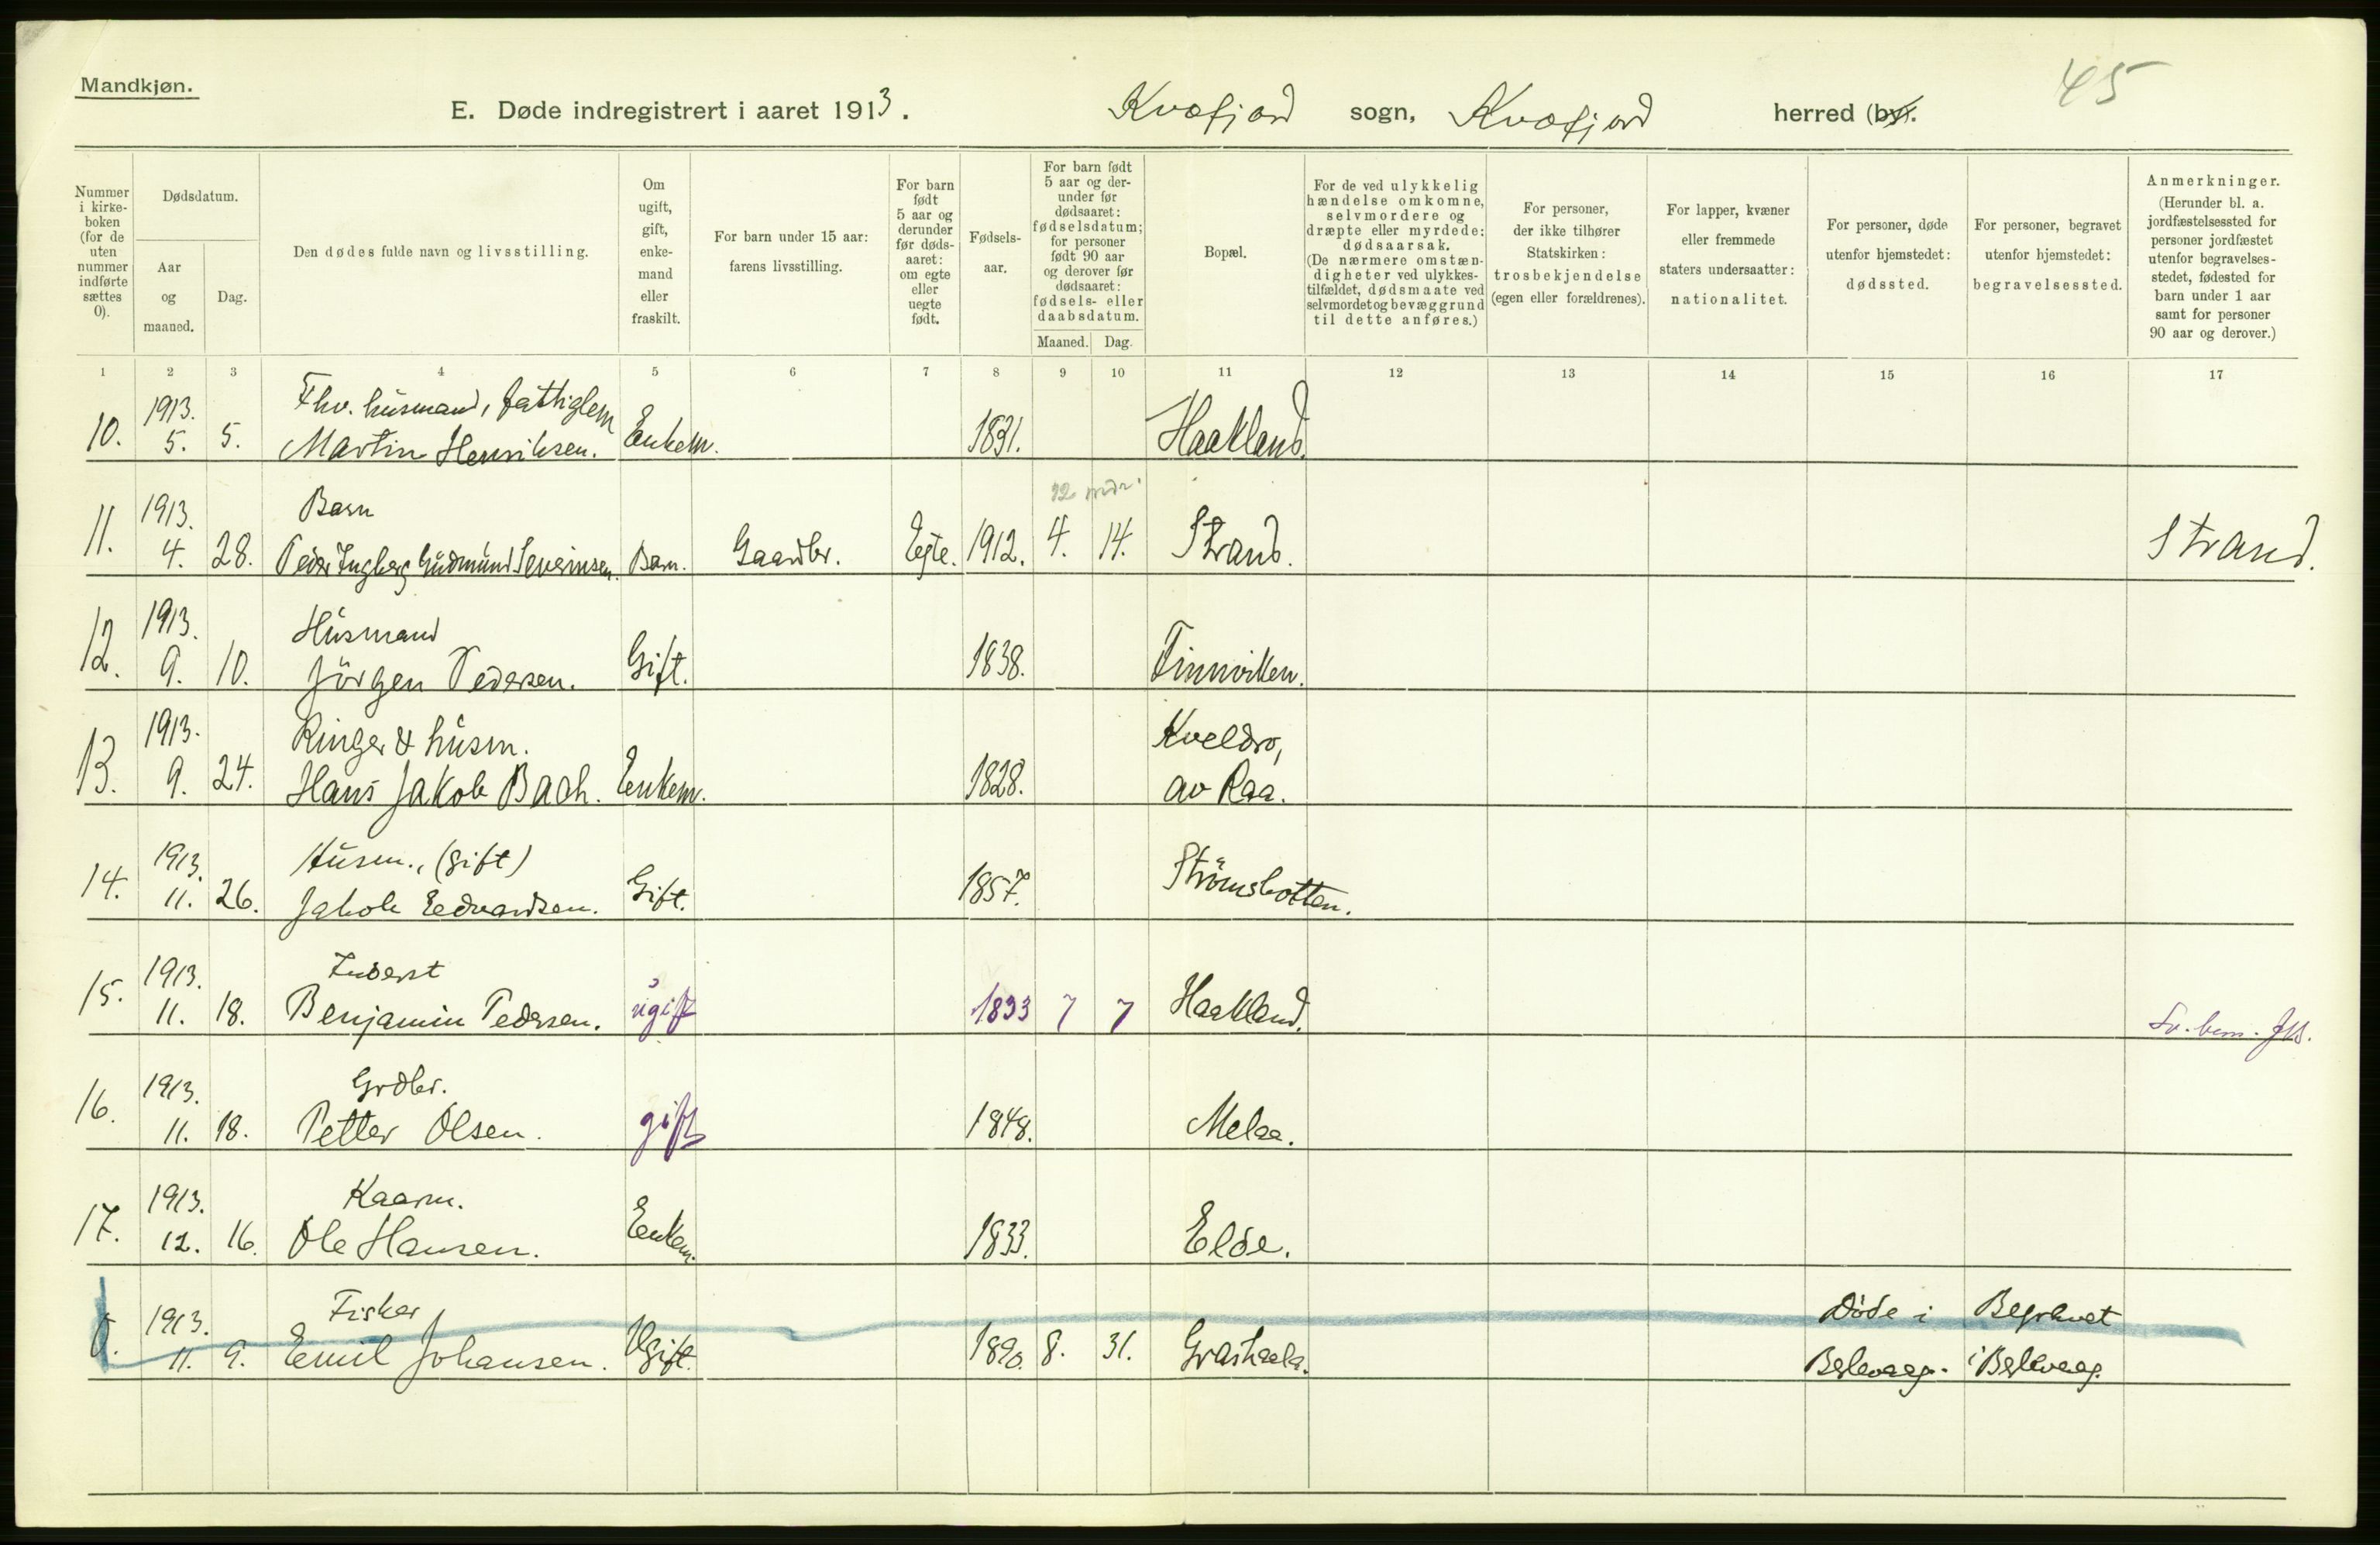 Mandkjøn.
45
E. Døde indregistrert i aaret 1913. Kvæfjord sogn, Kvæfjord herred (by).
Nummer i kirke-boken (for de uten nummer indførte sættes 0).
Dødsdatum.
Aar og maaned.
Dag.
Den dødes fulde navn og livsstilling.
Om ugift, gift, enke-mand eller fraskilt.
For barn under 15 aar: farens livsstilling.
For barn født 5 aar og derunder før døds-aaret: om egte eller uegte født.
Fødsels-aar.
For barn født 5 aar og der-under før dødsaaret: fødselsdatum; for personer født 90 aar og derover før dødsaaret: fødsels- eller daabsdatum.
Maaned. Dag.
Bopæl.
For de ved ulykkelig hændelse omkomne, selvmordere og dræpte eller myrdede: dødsaarsak. (De nærmere omstæn-digheter ved ulykkes-tilfældet, dødsmaate ved selvmord og bevæggrund til dette anføres.)
For personer, der ikke tilhører Statskirken: trosbekjendelse (egen eller forældrenes).
For lapper, kvæner eller fremmede staters undersaatter: nationalitet.
For personer, døde utenfor hjemstedet: dødssted.
For personer, begravet utenfor hjemstedet: begravelsessted.
Anmerkninger. (Herunder bl. a. jordfæstelsessted for personer jordfæstet utenfor begravelses-stedet, fødested for barn under 1 aar samt for personer 90 aar og derover.)
1 2 3 4 5 6 7 8 9 10 11 12 13 14 15 16 17
1913. Fhv. husmand, fattiglem
10. 5. 5. Martin Henriksen. Enkem. 1831. Haakland.
12 mdr.
1913. Barn
11. 4. 28. Peder Ingberg Gudmund Severinsen. Barn. Gaardbr. Egte. 1912. 4. 14. Strand. Strand.
1913. Husmand
12. 9. 10. Jörgen Pedersen. Gift. 1838. Finnviken.
1913. Ringer & husm. Kveldro,
13. 9. 24. Hans Jakob Bach. Enkem. 1828. av Raa.
1913. Husm., (gift)
14. 11. 26. Jakob Eedvardsen. Gift. 1857. Strömsbotten.
1913. Inderst
15. 11. 18. Benjamin Pedersen. ugift 1833 7 7 Haakland.
1913. Grdbr.
16. 11. 18. Petter Olsen. gift 1848. Melaa.
1913. Kaarm.
17. 12. 16. Ole Hansen. Enkem. 1833. Elde.
1913. Fisker Døde i Begravet
0. 11. 9. Emil Johansen. Ugift. 1890. 8. 31. Berlevaag. i Berlevaag.